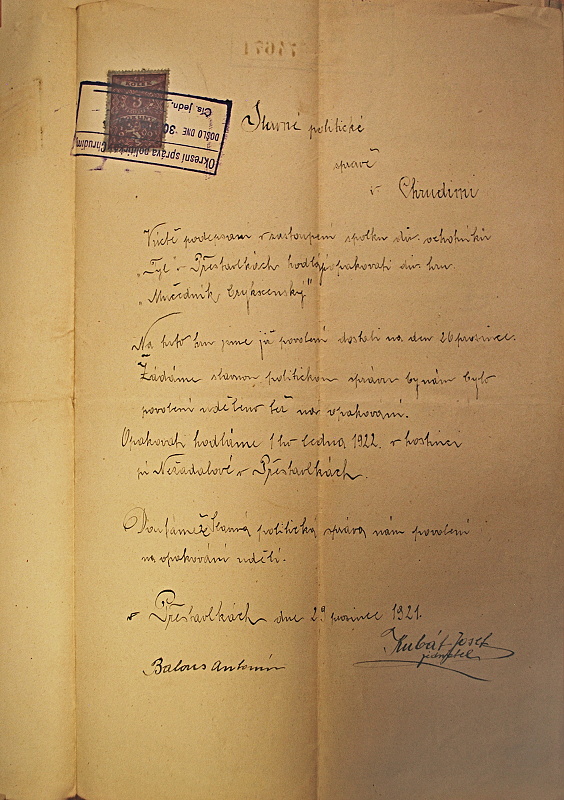 Slavné politické
správě
v Chrudimi
Okresní správa politická Chrudim
DOŠLO DNE 30
Čís. jedn.
KOLEK
Uctě podepsaní v zastoupení spolku div. ochotníků
„Tyl" v Přestavlkách hodlají opakovati div. hru
„Mučedník
Na tuto hru jsme již povolení dostali na den 26 prosince.
Žádáme slavnou politickou správu by nám bylo
povolení uděleno též na opakování.
Opakovati hodláme 1ho ledna 1922. v hostinci
pí Nežádalové v Přestavlkách.
Doufáme že Slavná politická správa nám povolení
na opakování udělí.
v Přestavlkách dne 29 prosince 1921.
Kubát Josef
jednatel
Balous Antonín